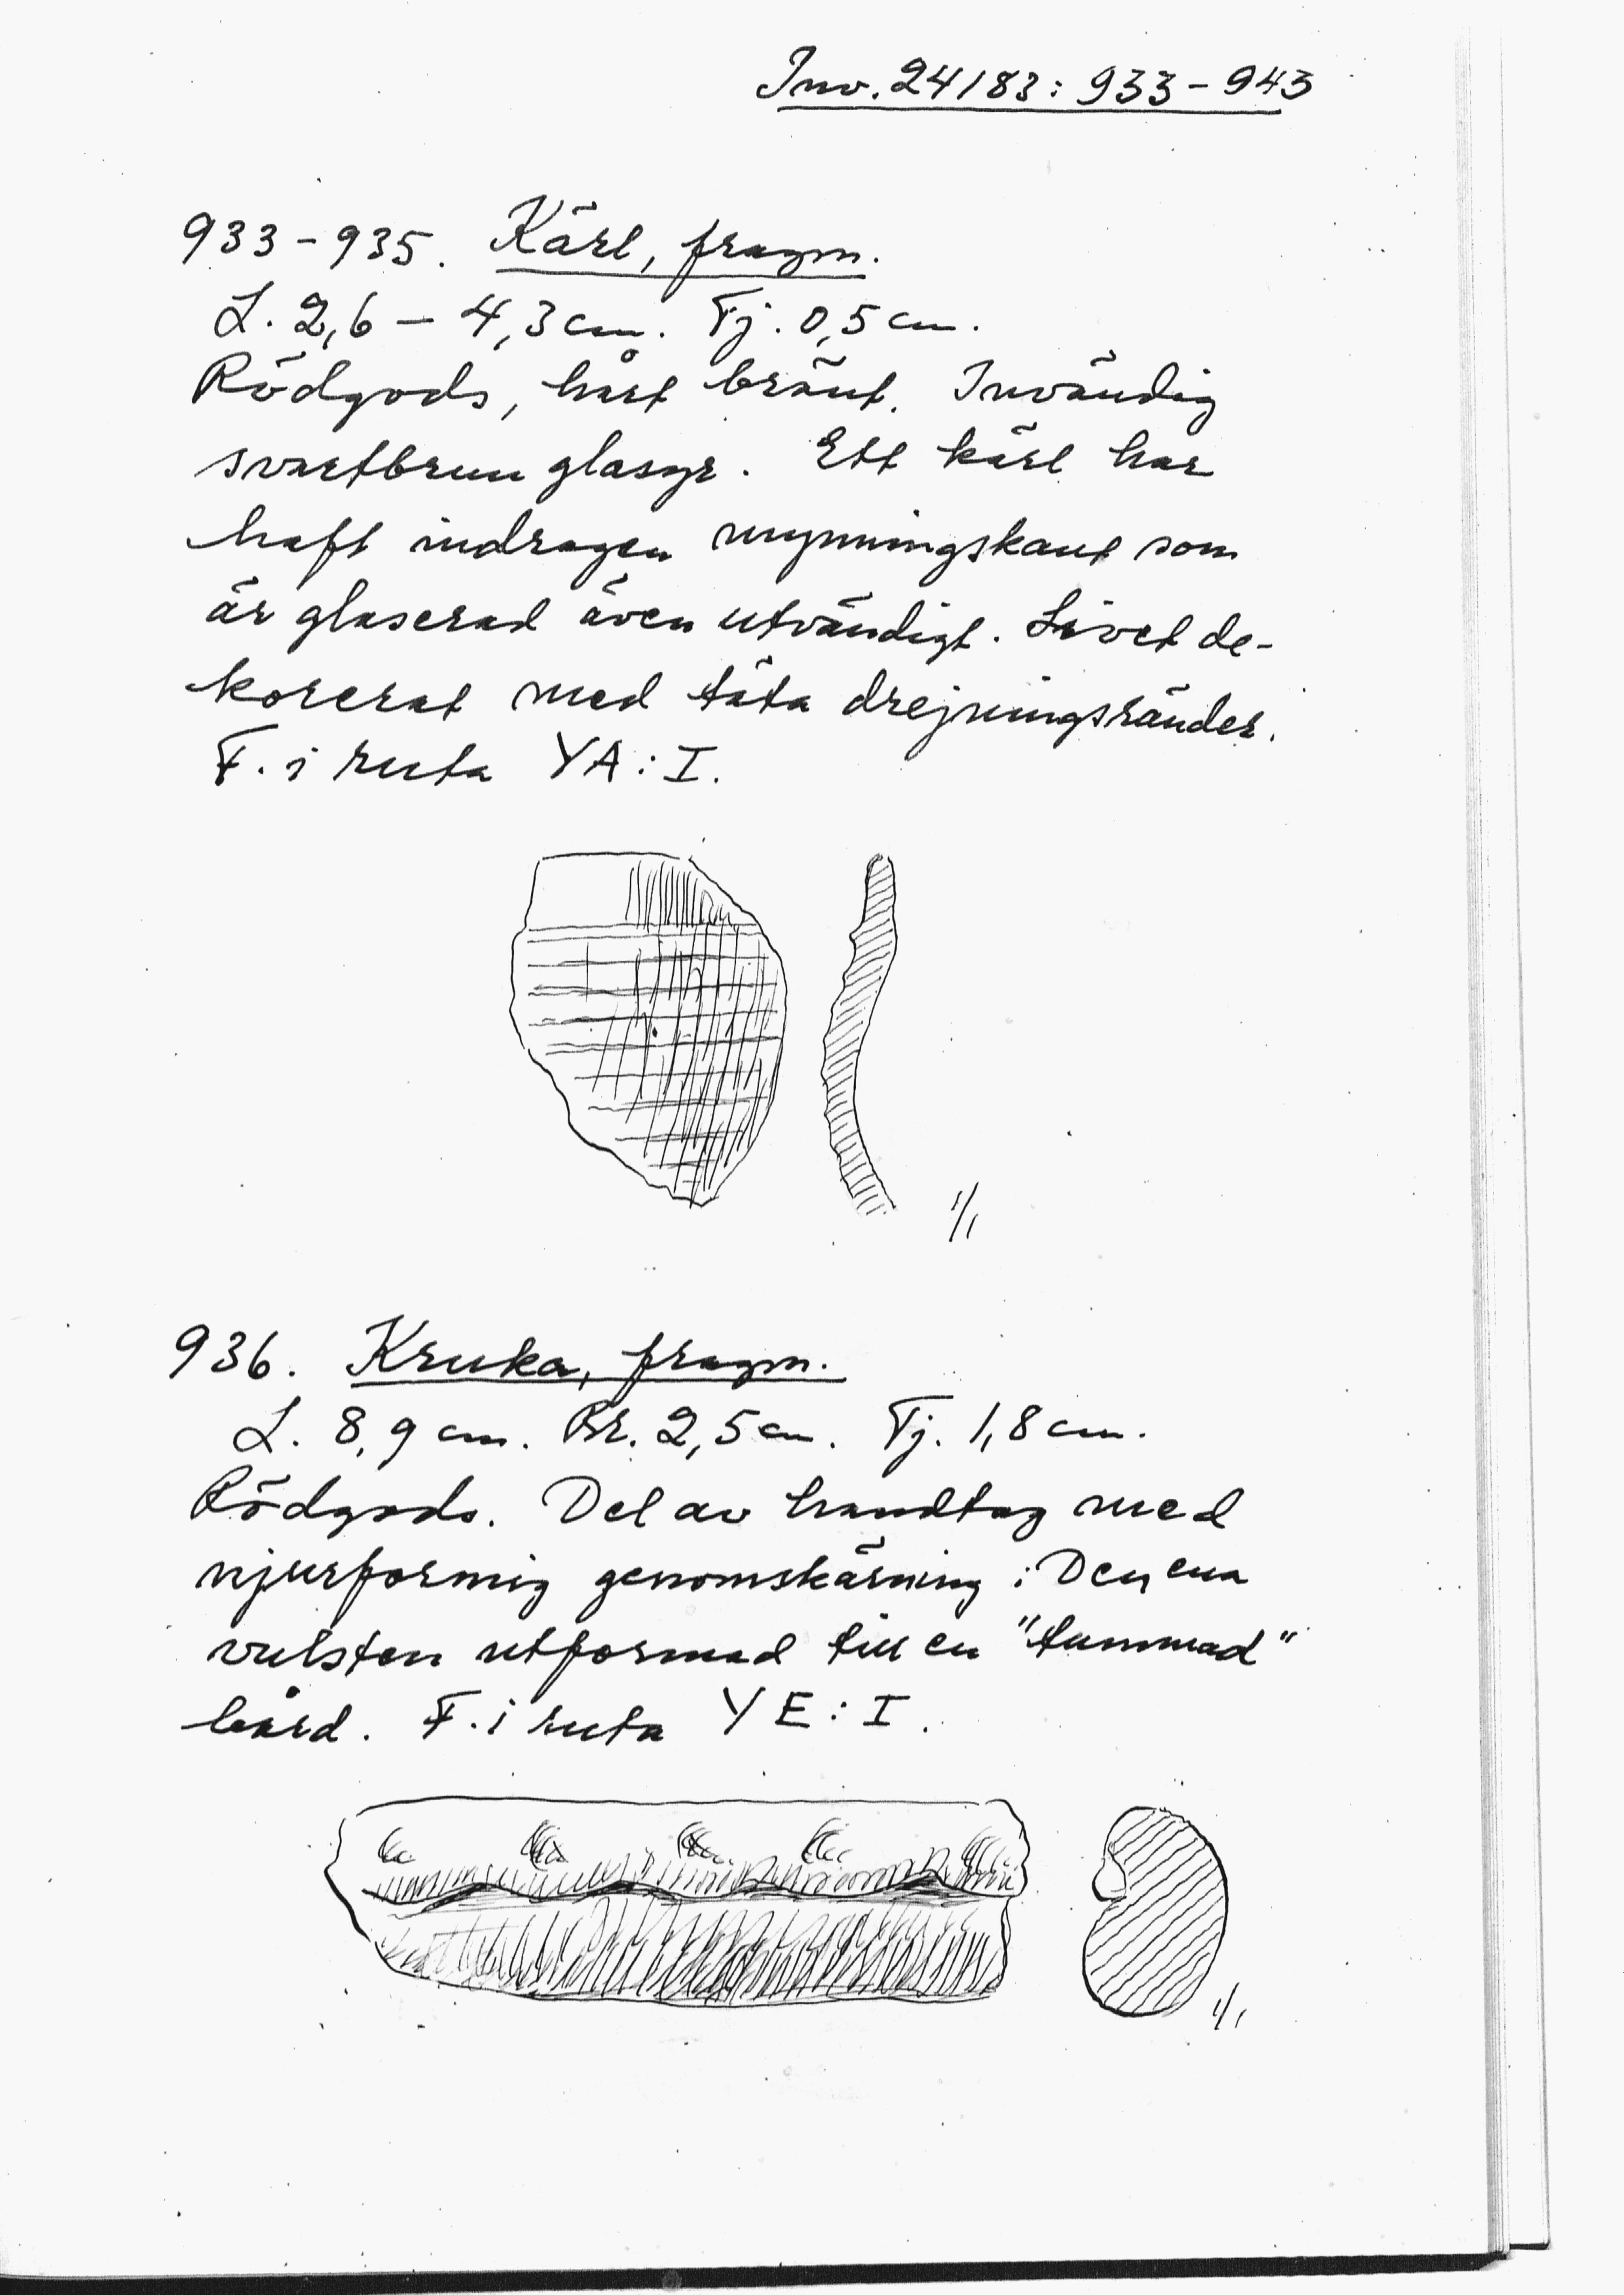 Inv. 24183: 933-943
933-935. Kärl, fragm.
L. 2,6 - 4,3 cm. Tj. 0,5 cm.
Rödgods, hårt bränt. Invändig
svartbrun glasyr. Ett kärl har
haft indragen mynningskant som
är glaserad även utvändigt. Livet de-
korerat med täta drejningsränder.
F. i ruta YA: I.
1/1
936. Kruka, fragm.
L. 8,9 cm. Br. 2,5 cm. Tj. 1,8 cm.
Rödgods. Del av handtag med
njurformig genomskärning. Den ena
vulsten utformad till en "tummad"
bård. F. i ruta YE: I.
1/1